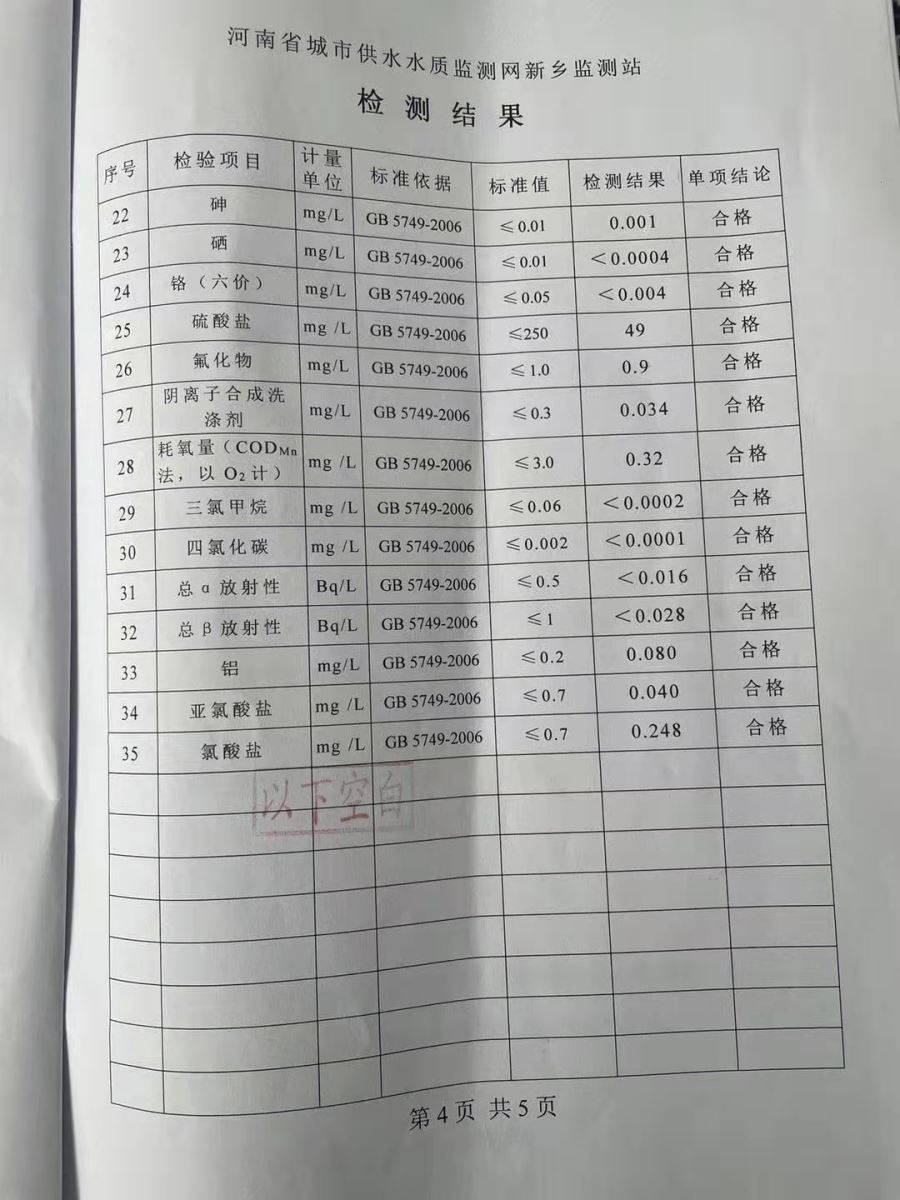 河南省城市供水水质监测网新乡监测站
检测结果
序号 检验项目 计量单位 标准依据 标准值 检测结果 单项结论
22 砷 mg/L GB 5749-2006 ≤0.01 0.001 合格
23 硒 mg/L GB 5749-2006 ≤0.01 <0.0004 合格
24 铬（六价） mg/L GB 5749-2006 ≤0.05 <0.004 合格
25 硫酸盐 mg /L GB 5749-2006 ≤250 49 合格
26 氟化物 mg/L GB 5749-2006 ≤1.0 0.9 合格
27 阴离子合成洗涤剂 mg/L GB 5749-2006 ≤0.3 0.034 合格
28 耗氧量（CODMn法，以 O2 计） mg /L GB 5749-2006 ≤3.0 0.32 合格
29 三氯甲烷 mg /L GB 5749-2006 ≤0.06 <0.0002 合格
30 四氯化碳 mg /L GB 5749-2006 ≤0.002 <0.0001 合格
31 总α放射性 Bq/L GB 5749-2006 ≤0.5 <0.016 合格
32 总β放射性 Bq/L GB 5749-2006 ≤1 <0.028 合格
33 铝 mg/L GB 5749-2006 ≤0.2 0.080 合格
34 亚氯酸盐 mg /L GB 5749-2006 ≤0.7 0.040 合格
35 氯酸盐 mg /L GB 5749-2006 ≤0.7 0.248 合格
以下空白
第4页 共5页